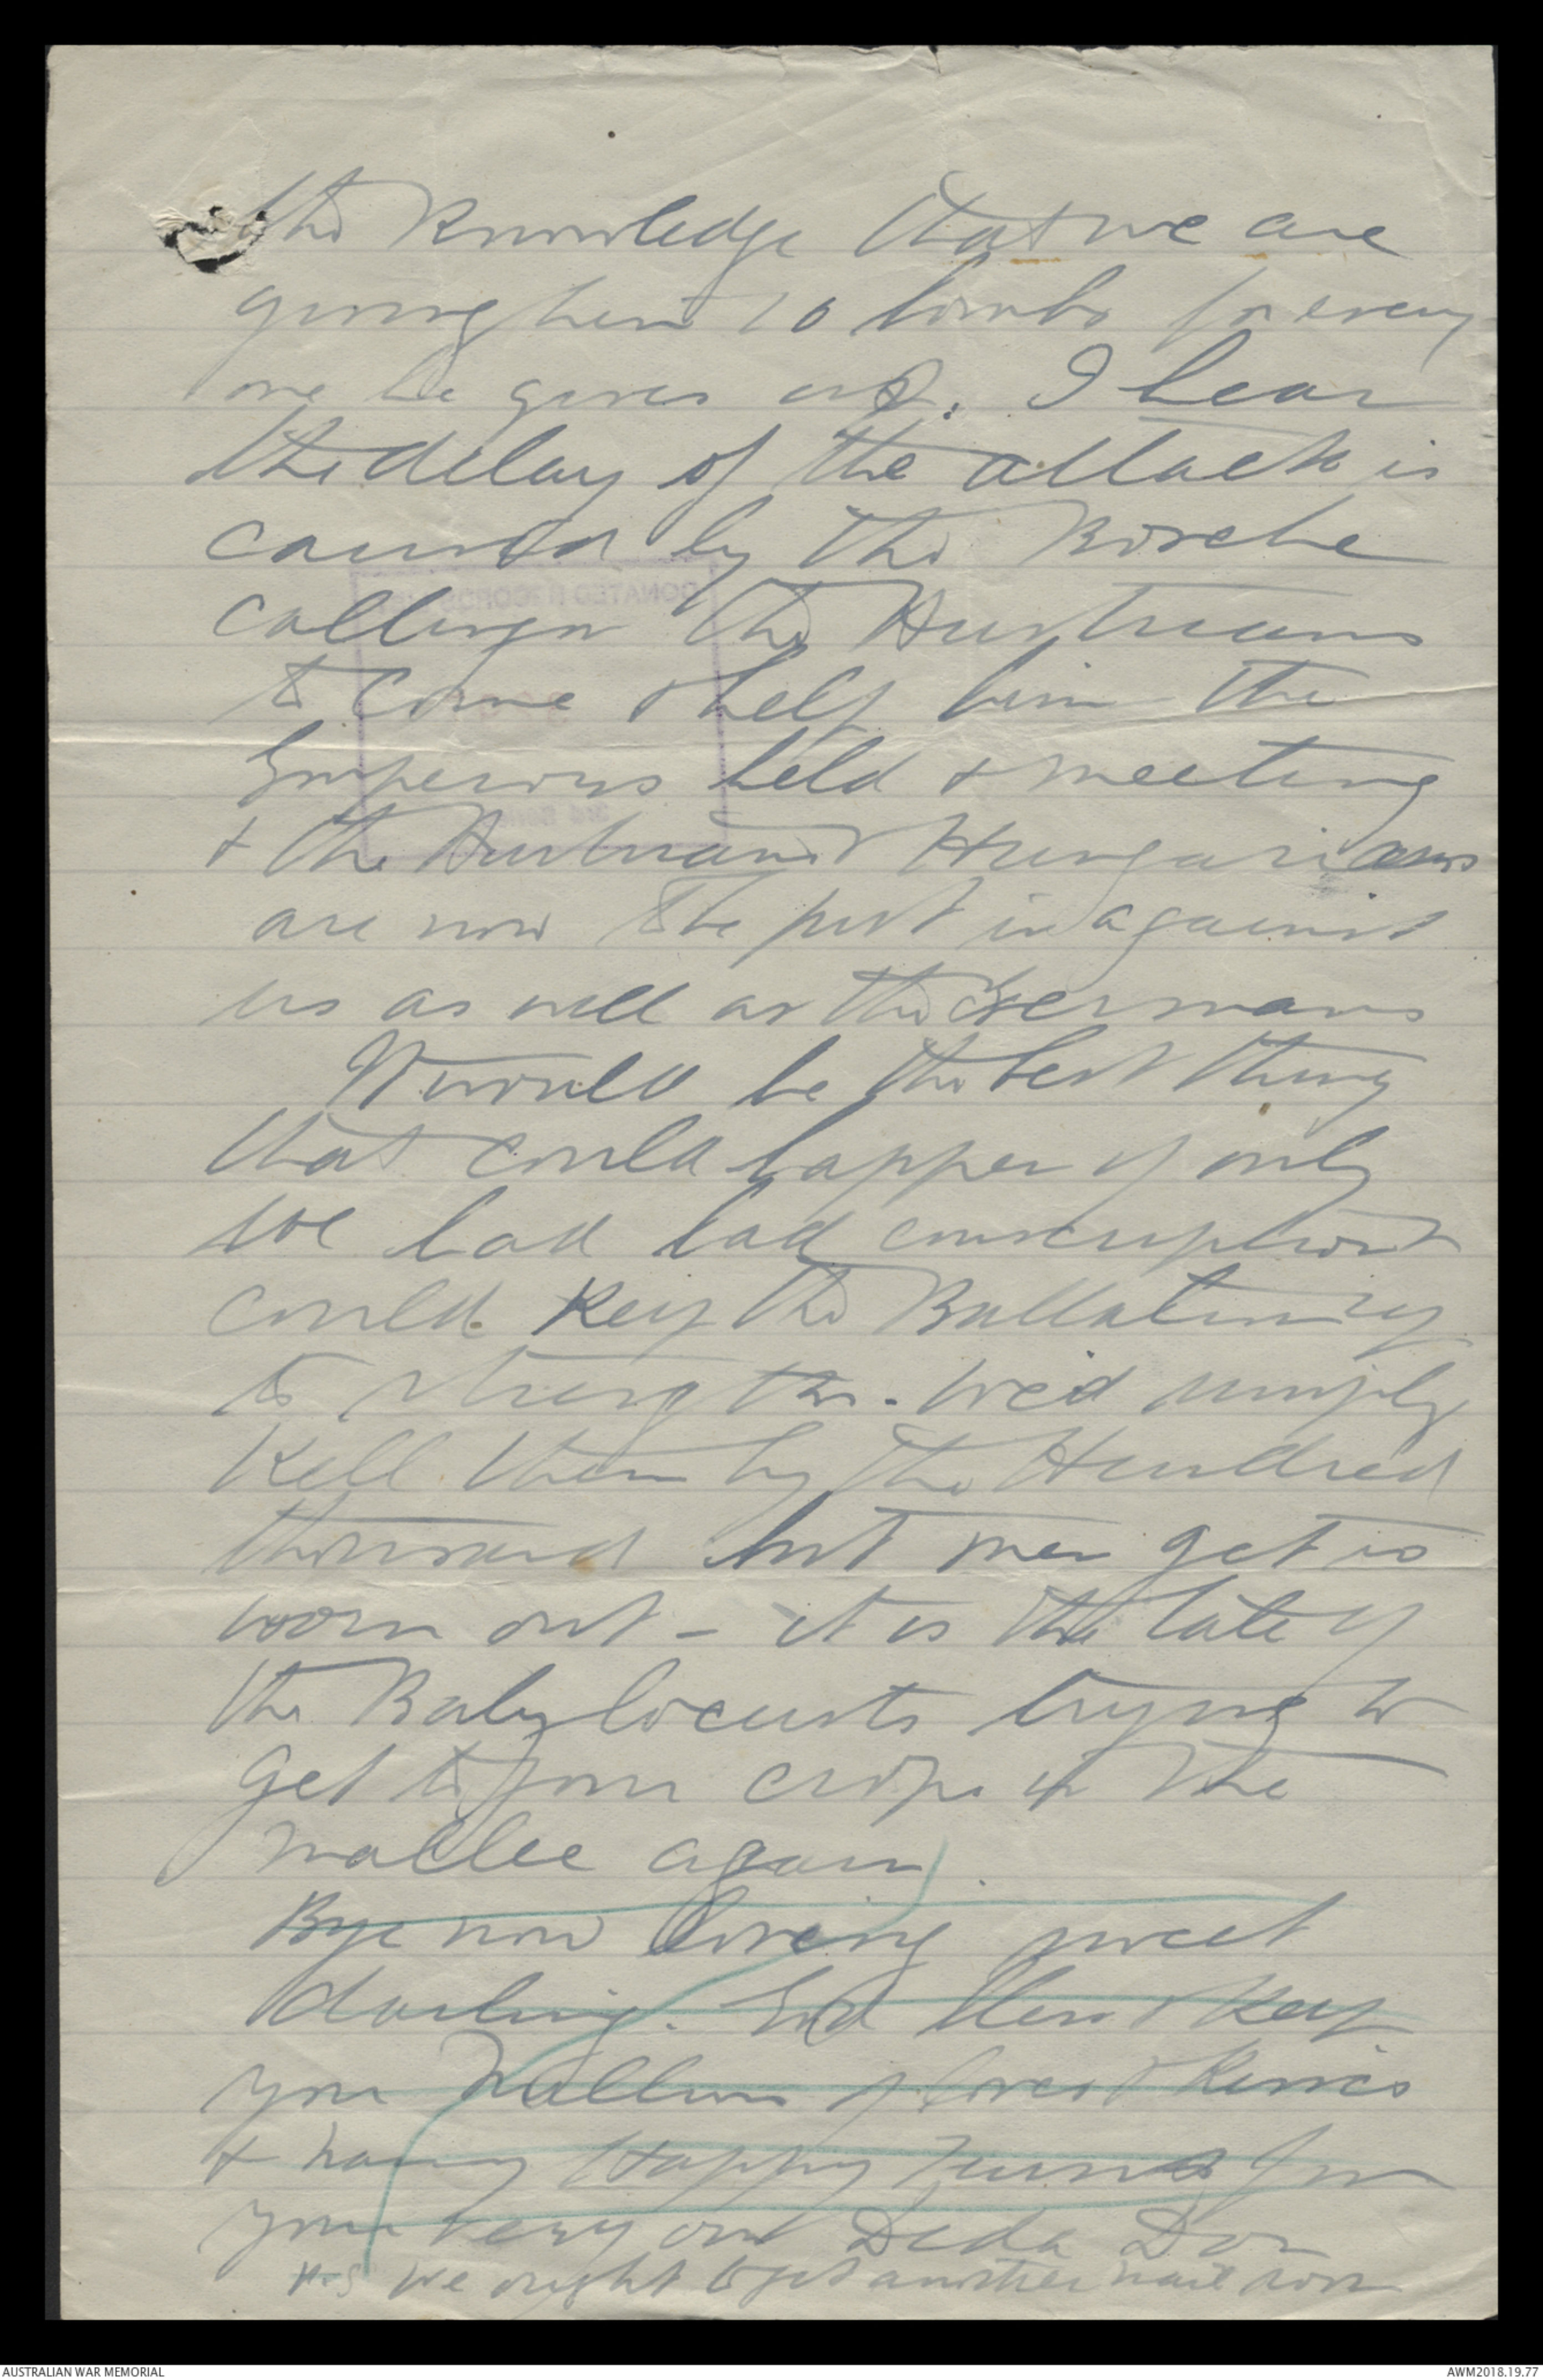 the knowledge that we are
giving him 10 bombs for every
one he gives us. I hear
the delay of the attack is
caused by the Bosche
calling on the Austrians
to come & help him the
Emperors held a meeting
& the Austrians & Hungarians
are now to be put in against
us as well as the Germans
It would be the best thing
that could happen if only
we had had conscription &
could keep the Battalions up
to strength. We'd simply
kill them by the Hundred
thousand but men get so
worn out - it is the tale of
the Baby locusts trying to
get to your crops in the
mallee again.
Bye now loving sweet
darling. God bless & keep
you Millions of loves & kisses
& many Happy Times from
your very own Dida Don
P.S We ought to get another mail soon
DONATED RECORDS
3rd Series
AUSTRALIAN WAR MEMORIAL
AWM2018.19.77